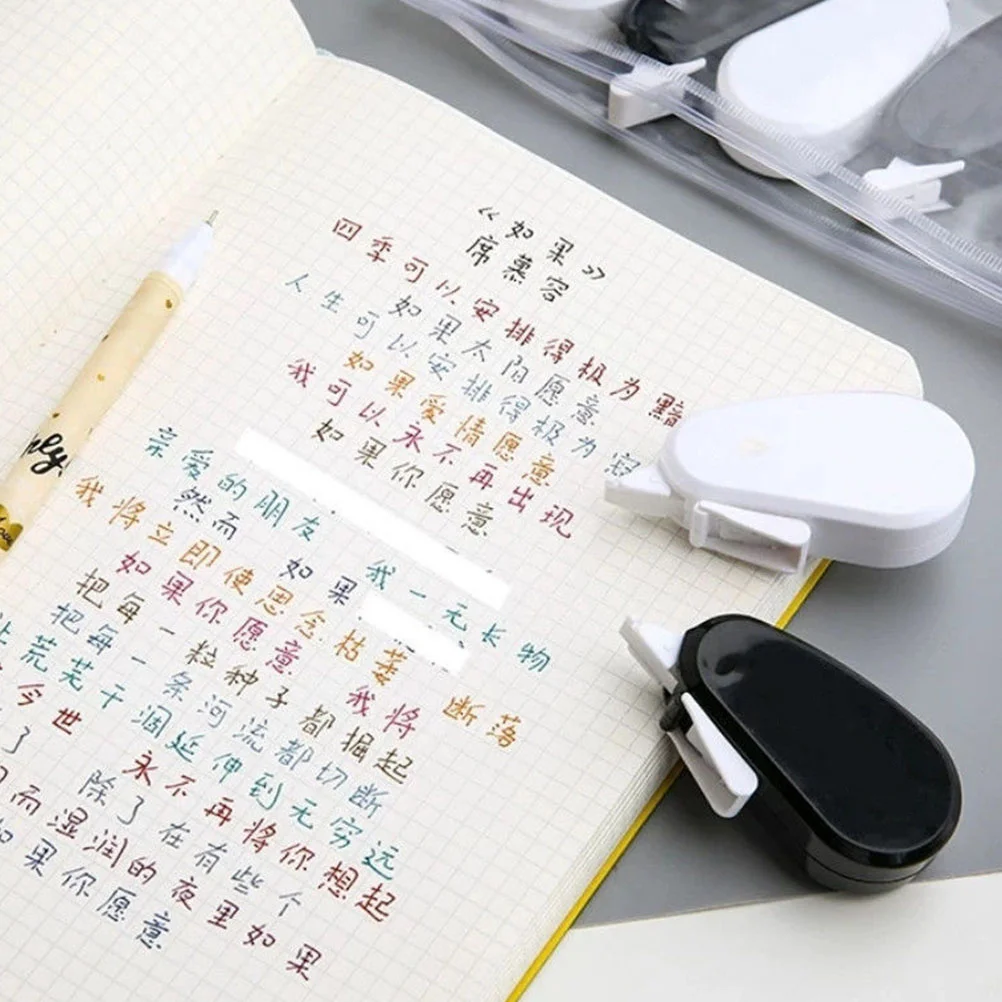 《如果》
席慕容
四季可以安排得极为黯
如果太阳愿意
人生可以安排得极为寂
如果爱情愿意
我可以永不再出现
如果你愿意
亲爱的朋友 我一无长物
然而 如果
我将立即使思念枯萎 断落
如果你愿意 我将
把每一粒种子都掘起
把每一条河流都切断
荒芜干涸延伸到无穷远
今世 永不再将你想起
了 除了在有些个
而湿润的夜里如果
如果你愿意